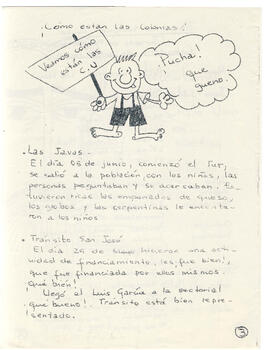 ¡Cómo están las Colonias!
Veamos cómo
están las
C.U
¡Pucha!
que
gueno.
. Las Javas.
El día 06 de junio, comenzó el Tur,
se salió a la población con los niños, las
personas preguntaban y se acercaban. Es-
tuvieron ricas las empanadas de queso,
los globos y las serpentinas le encanta-
ron a los niños.
. Tránsito San José
El día 26 de hicieron una acti-
vidad de financiamiento, les fue bien!,
que fue financiada por ellos mismos.
Qué bien!
Llegó el Luis García a la sectorial
qué bueno!. Tránsito está bien repre-
sentado.
3